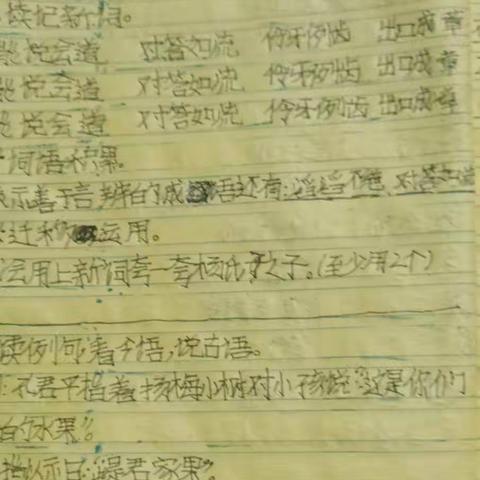 读记新词。
能说会道 对答如流 伶牙俐齿 出口成章
能说会道 对答如流 伶牙俐齿 出口成章
能说会道 对答如流 伶牙俐齿 出口成章
词语积累
表示善于言辨的成语还有:滔滔不绝、对答如流
迁移运用。
运用上新词夸一夸杨氏之子。(至少用2个)
读例句,看今语,说古语。
:孔君平指着杨梅小树对小孩说:"这是你们
的水果"。
指以示曰:"是君家果"。